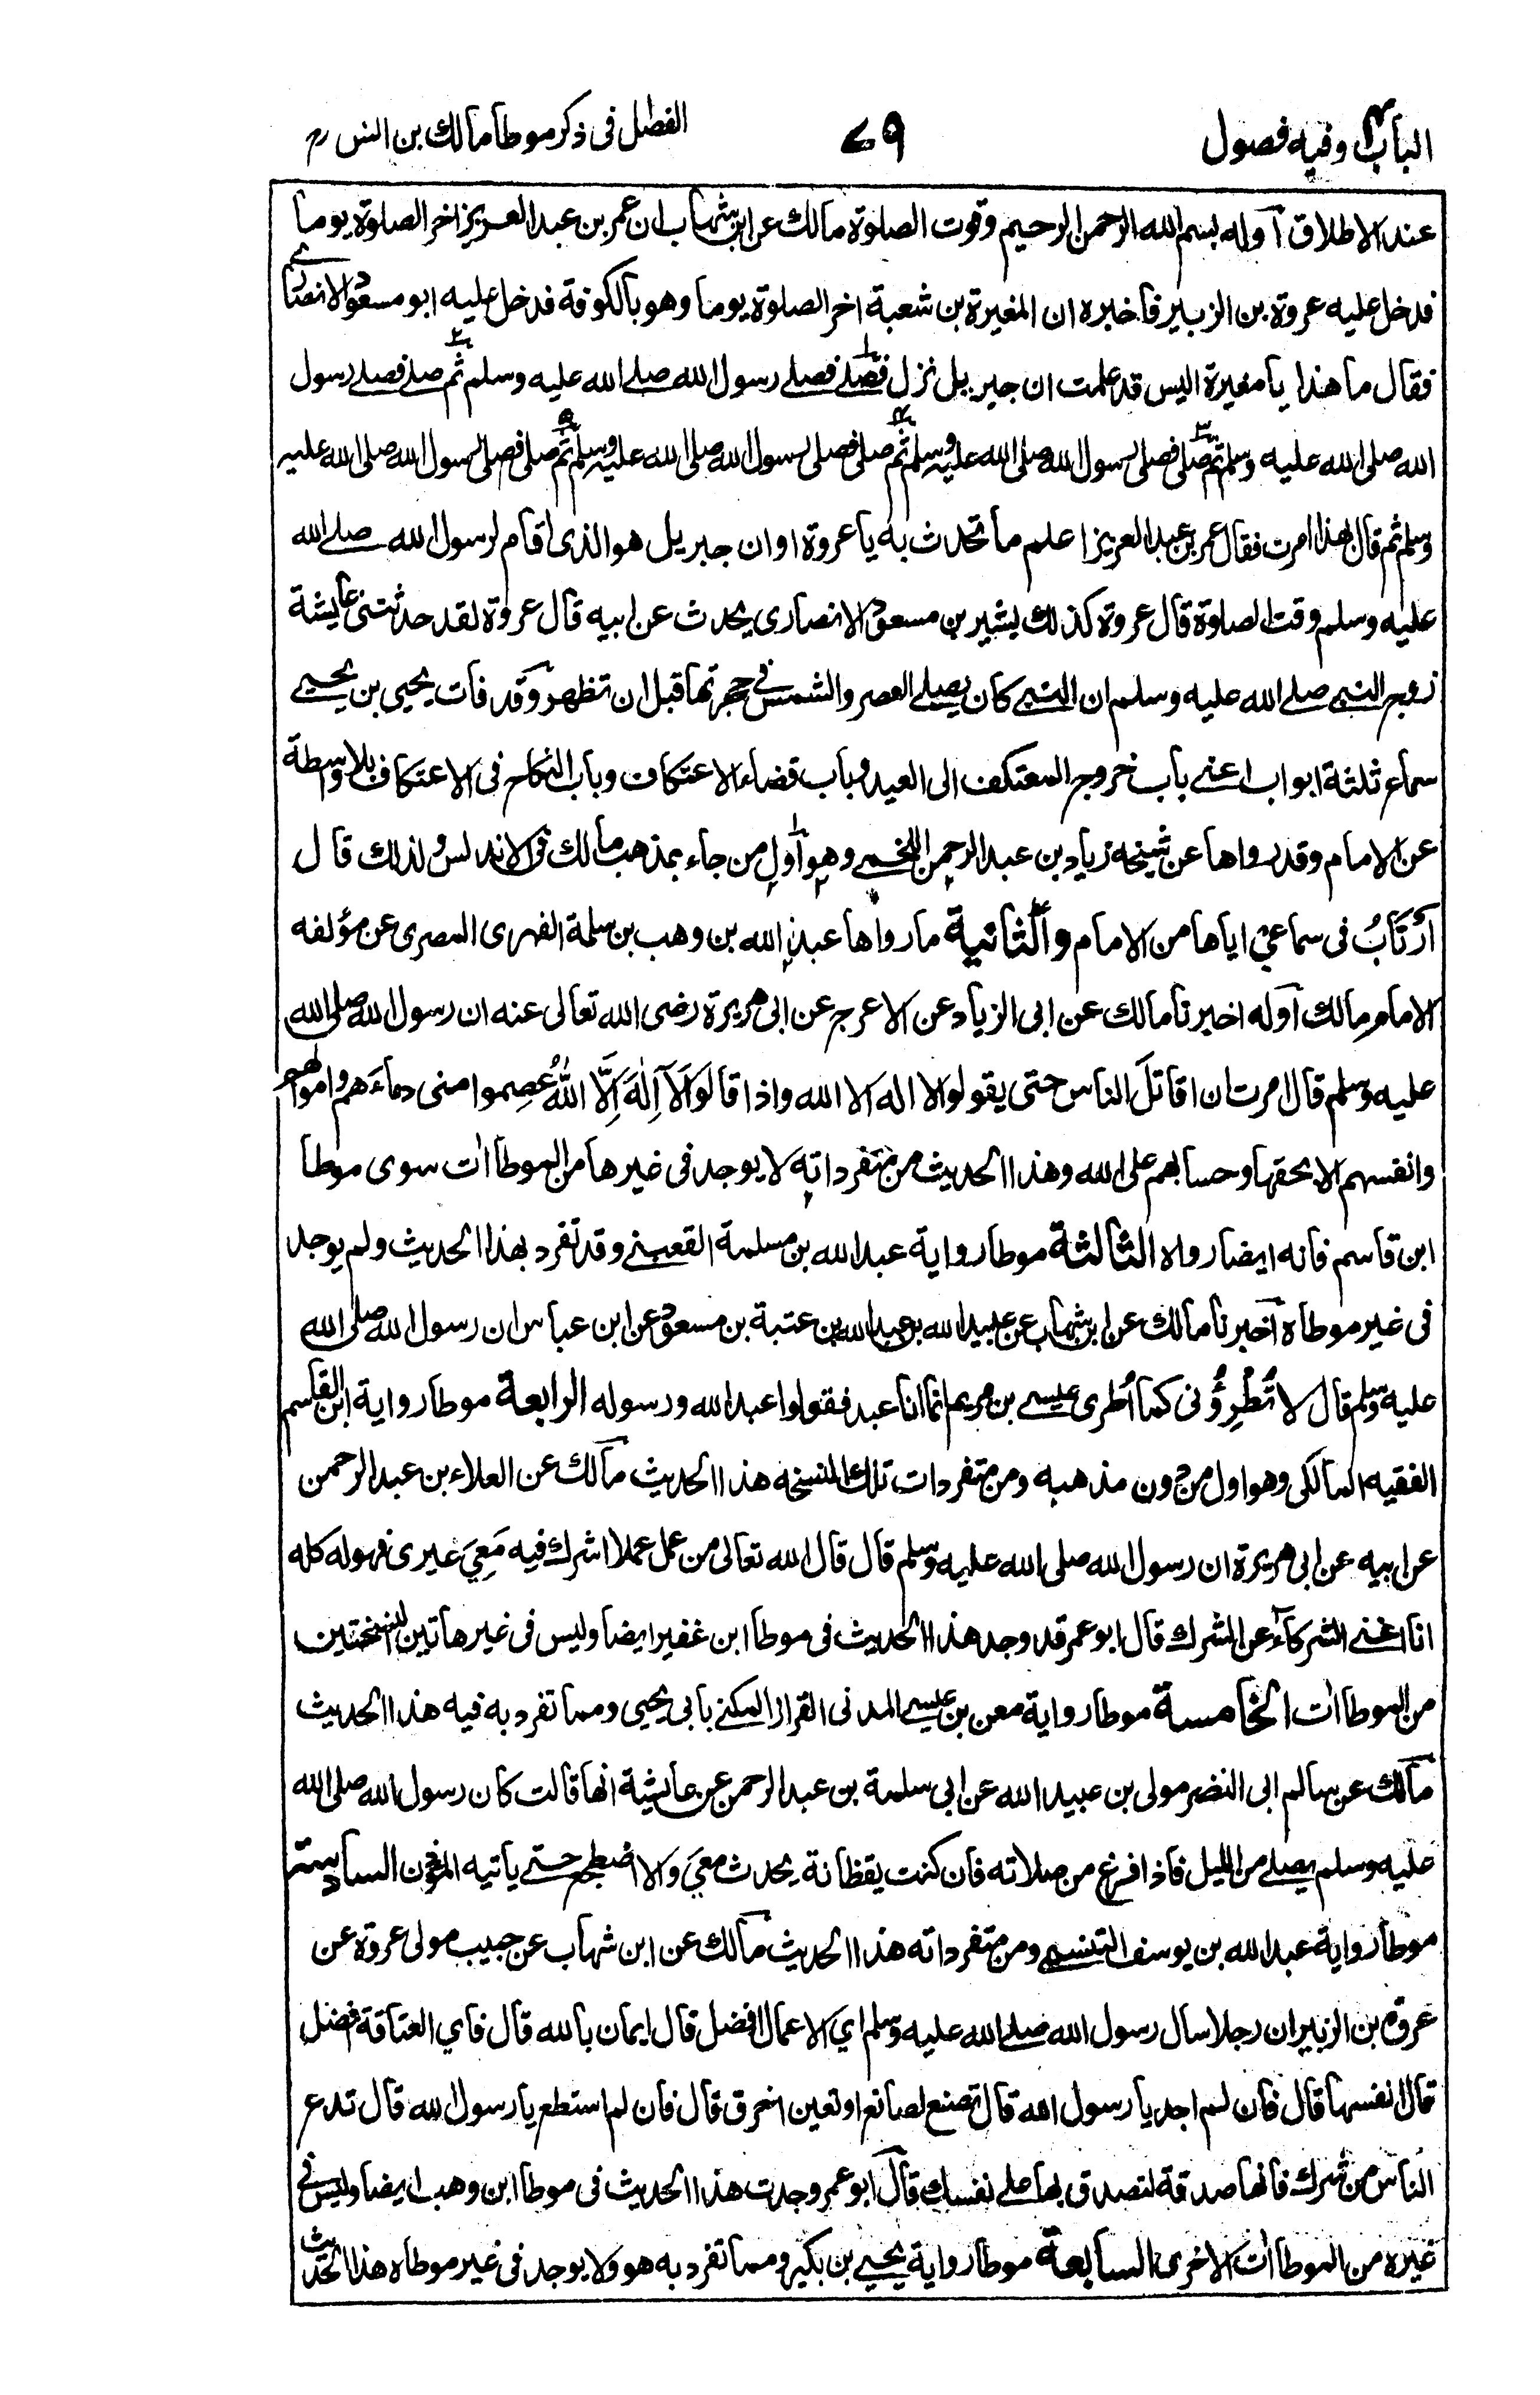 الباب وفيه فصول
٧٩
الفصل فى ذكر موطأ مالك بن انس رح
عند الاطلاق أوله بسم الله الرحمن الرحيم وقوت الصلوة مالك عن ابن شهاب ان عمر بن عبد العزيز اخر الصلوة يوما
فدخل عليه عروة بن الزبير فاخبره ان المغيرة بن شعبة اخر الصلوة يوما وهو بالكوفة فدخل عليه ابو مسعود الانصارى
فقال ما هذا يا مغيرة اليس قد علمت ان جبريل نزل فصلى فصلى رسول الله صلى الله عليه وسلم ثم صلى فصلى رسول
الله صلى الله عليه وسلم ثم صلى فصلى رسول الله صلى الله عليه وسلم ثم صلى فصلى رسول الله صلى الله عليه وسلم ثم صلى فصلى رسول الله صلى الله عليه
وسلم ثم قال بهذا امرت فقال عمر بن عبد العزيز اعلم ما تحدث به يا عروة اوان جبريل هو الذى اقام لرسول الله صلى الله
عليه وسلم وقت الصلوة قال عروة كذلك بشير بن مسعود الانصارى يحدث عن ابيه قال عروة لقد حدثتنى عايشة
زوج النبى صلى الله عليه وسلم ان النبى كان يصلى العصر والشمس فى حجرتها قبل ان تظهر وقد فات يحيى بن يحيى
سماع ثلثة ابواب اعنى باب خروج المعتكف الى العيد وباب قضاء الاعتكاف وباب النكاح فى الاعتكاف بلا واسطة
عن الامام وقد رواها عن شيخه زياد بن عبد الرحمن اللخمى وهو أول من جاء بمذهب مالك فى الاندلس ولذلك قال
أرْتَابُ فى سماعى اياها من الامام والثانية ما رواها عبد الله بن وهب بن سلمة الفهرى المصرى عن مؤلفه
الامام مالك أوله اخبرنا مالك عن ابى الزناد عن الاعرج عن ابى هريرة رضى الله تعالى عنه ان رسول الله صلى الله
عليه وسلم قال امرت ان اقاتل الناس حتى يقولوا لا اله الا الله واذا قالوا لَآ اِلٰهَ اِلَّا اللهُ عُصِموا منى دماءَهم واموالهم
وانفسهم الا بحقها وحسابهم على الله وهذا الحديث من متفرداته لا يوجد فى غيرها من الموطاات سوى موطا
ابن قاسم فانه ايضا رواه الثالثة موطا رواية عبد الله بن مسلمة القعنبى وقد تفرد بهذا الحديث ولم يوجد
فى غير موطاه اخبرنا مالك عن ابن شهاب عن عبيد الله بن عبد الله بن عتبة بن مسعود عن ابن عباس ان رسول الله صلى الله
عليه وسلم قال لا تُطْرِوُنى كما اُطرى عيسى بن مريم انما انا عبد فقولوا عبد الله ورسوله الرابعة موطا رواية ابن القاسم
الفقيه المالكى وهو اول من دون مذهبه ومن متفردات تلك النسخه هذا الحديث مالك عن العلاء بن عبد الرحمن
عن ابيه عن ابى هريرة ان رسول الله صلى الله عليه وسلم قال قال الله تعالى من عمل عملا اشرك فيه مَعِيَ غيرى فهو له كله
انا اغنى الشركاء عن الشرك قال ابو عمر قد وجد هذا الحديث فى موطا ابن غفير ايضا وليس فى غير هاتين النسختين
من الموطاات الخامسة موطا رواية معن بن عيسى المدنى القزاز المكنى بابى يحيى ومما تفرد به فيه هذا الحديث
مالك عن سالم ابى النضر مولى بن عبيد الله عن ابى سلمة بن عبد الرحمن عن عايشة انها قالت كان رسول الله صلى الله
عليه وسلم يصلى من الليل فاذا فرغ من صلاته فان كنت يقظانة يحدث معي والا اضطجع حتى ياتيه المؤذن السادسة
موطا رواية عبد الله بن يوسف التنيسى ومن متفرداته هذا الحديث مالك عن ابن شهاب عن حبيب مولى عروة عن
عروة بن الزبير ان رجلا سال رسول الله صلى الله عليه وسلم اي الاعمال افضل قال ايمان بالله قال فاي العتاقة افضل
قال انفسها قال فان لم اجد يا رسول الله قال تصنع لصانع او تعين اخرق قال فان لم استطع يا رسول الله قال تدع
الناس من شرك فانها صدقة لتصدق بها على نفسك قال ابو عمر وجدت هذا الحديث فى موطا ابن وهب ايضا وليس فى
غيره من الموطاات الاخرى السابعة موطا رواية يحيى بن بكير ومما تفرد به هو ولا يوجد فى غير موطاه هذا الحديث